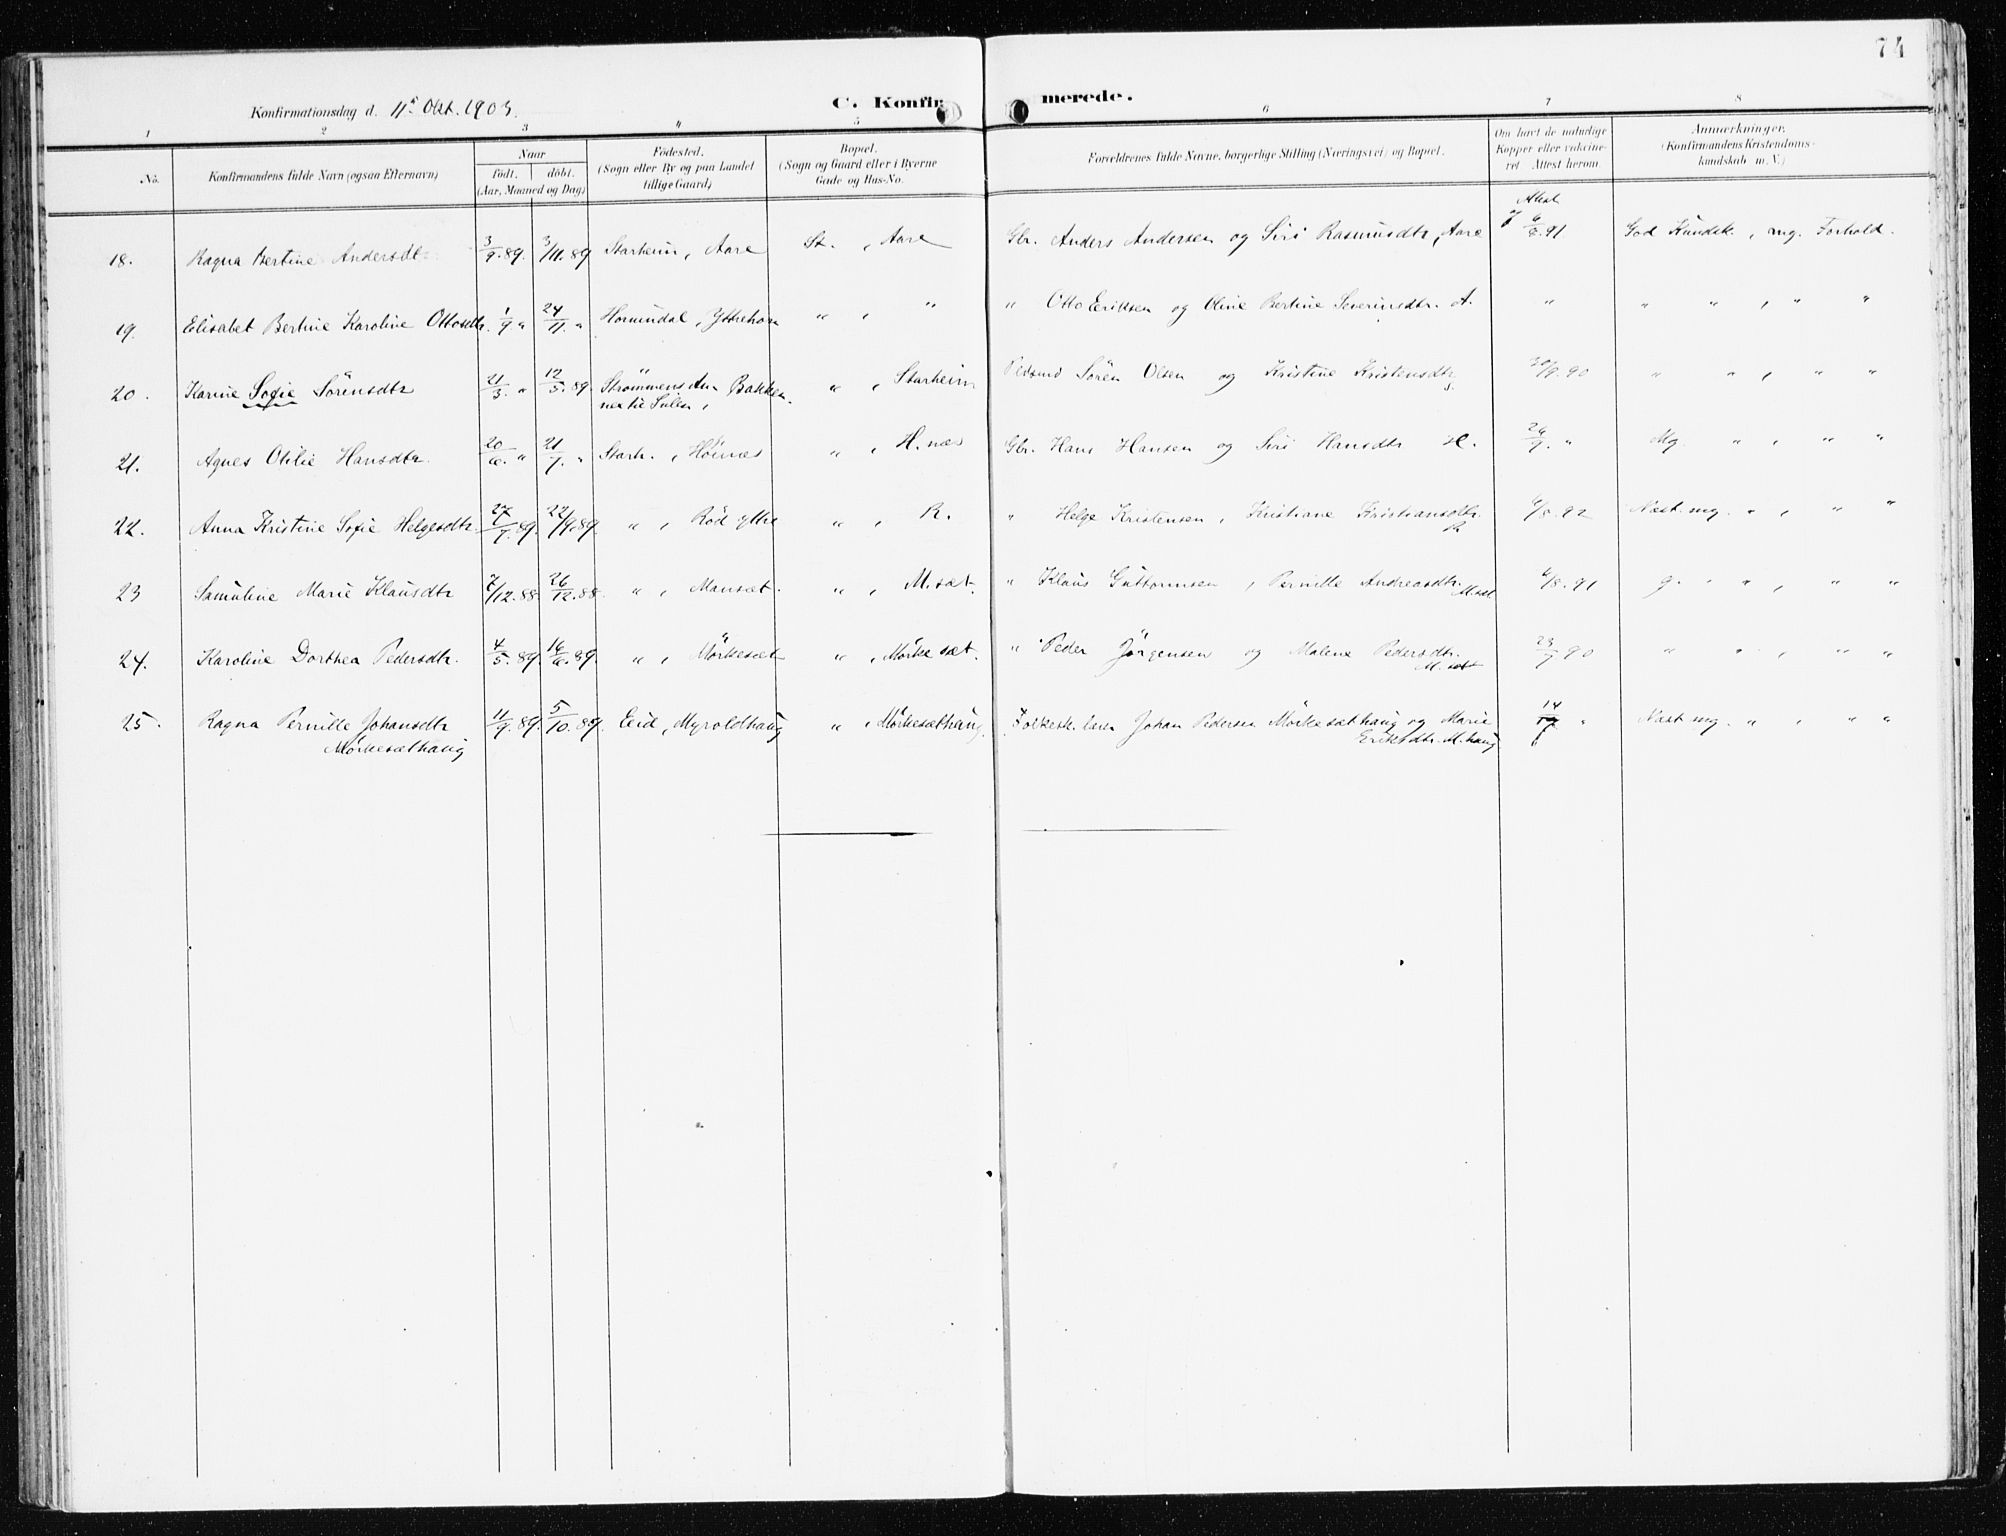 74
Konfirmationsdag d. 11te Okt. 1903.
C. Konfirmerede.
1 2 3 4 5 6 7 8
No.
Konfirmandens fulde Navn (ogsaa Efternavn)
Naar
født. døbt.
(Aar, Maaned og Dag)
Fødested.
(Sogn eller By og paa Landet
tillige Gaard)
Bopæl.
(Sogn og Gaard eller i Byerne
Gade og Hus-No.
Forældrenes fulde Navne, borgerlige Stilling (Næringsvei) og Bopæl.
Om havt de naturlige
Kopper eller vakcine-
ret. Attest herom.
Anmærkninger.
(Konfirmandens Kristendoms-
kundskab m. V.)
Attest
18. Ragna Bertine Andersdtr. 3/9.89. 3/11.89 Starheim, Aare St. , Aare Gbr. Anders Andersen og Siri Rasmusdtr, Aare 6/8.91 God Kundsk., mg. Forhold.
19. Elisabet Bertine Karoline Ottosdtr. 1/9 " 24/11. " Hornindal, Ytrehorn " , " " Otto Eriksen og Oline Bertine Severinsdtr. A. " " " , " "
20. Karine Sofie Sörensdtr 21/3 " 12/5.89. Strømmens Bakken " , Starheim Søren Olsen og Kristine Kristensdtr S. 30/9.90 " " , " "
21. Agnes Otilie Hansdtr. 20/6. " 21/7. " Starh. , Høinæs " , H.næs Gbr. Hans Hansen og Siri Hansdtr H. 24/9. " Mg. " , " "
22. Anna Kristine Sofie Helgesdtr 27/7.89. 22/9.89. " , Rød ytre " , R. " Helge Kristensen, Kristiane Kristiansdtr. R 6/8.92 Næst. mg. " , " "
23 Samuline Marie Klausdtr 7/12.88. 26/12.88. " , Mansæt. " , M.sæt. " Klaus Guttormsen, Pernille Andreasdtr. M.sæt 6/8.91 g. " " , " "
24. Karoline Dorthea Pedersdtr. 4/5.89. 16/6.89. " , Mørkesæt " , Mørkesæt. " Peder Jørgensen og Malene Pedersdtr. M.sæt 23/9.90 " " , " "
25. Ragna Pernille Johansdtr 11/9.89. 5/10.89. Eid, Myroldhaug " , Mørkesæthaug. Folkesk.lærer Johan Pedersen Mørkesæthaug og Marie 14/9 " Næst mg. " , " "
Mørkesæthaug Eriksdtr. M.haug